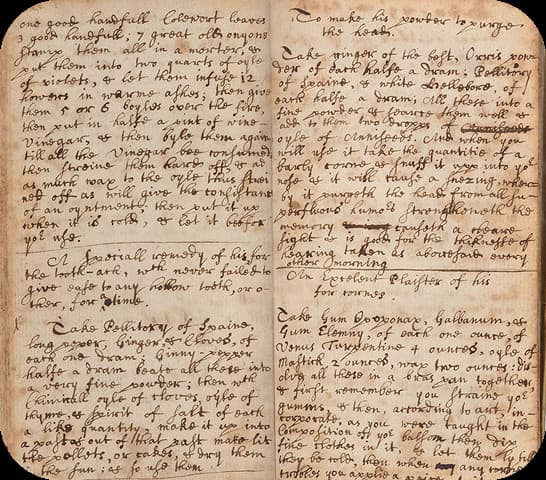 one good handfull Colewort leaves
3 good handfull; 7 great old onyons
stamp them all in a morter, &
put them into two quarts of oyle
of violets, & let them infuse 12
howers in warme ashes; then give
them 5 or 6 boyles over the fire,
then put in halfe a pint of wine-
Vinegar, & then boyle them again
till all the Vinegar bee consumed,
then streine them hard off, & ad
as much wax to the oyle thus strei
ned off as will give the consistance
of an oyntment; then put it up
when it is cold, & let it be for
yor use.
A Speciall remedy of his for
the tooth-ach, wch never failed to
give ease to any hollow tooth, or o-
ther, for a time.
Take Pellitory of Spaine,
long peper, Ginger, & Cloves, of
each one dram; Ginny-pepper
halfe a dram beate all these into
a very fine powder; then wth
Chimicall oyle of cloves, oyle of
thyme, & spirit of salt of each
a like quantity, make it up into
a past & out of that past make lit
tle pellets, or cakes, & dry them
in the sun: & so use them
To make his powder to purge
the head.
Take ginger of the best, Orris pow-
der of each halfe a dram; Pellitory
of Spaine, & white Hellebore of
each halfe a dram; All these into a
fine powder, & searce them well &
ad to them two
oyle of Anniseeds. And when you
will use it take the quantitie of a
barly corne & snuff it upp into yor
nose & it will cause a snezing, wher
by it purgeth the head from all su
perfluous humors strengtheneth the
memory causeth a cleare
sight, & is good for the thicknesse of
hearing taken as aforesaid every
other morning
An Excelent Plaister of his
for cornes.
Take Gum Opoponax, Galbanum, &
Gum Elemny, of each one ounce, of
Venus Turpentine 4 ounces, oyle of
Mastick 2 ounces, wax two ounces: dis
solve all these in a bras pan together,
& first remember you straine yor
gumms & then, according to art, in-
corporate, as you were taught in the
composition of yor balsom then dip
fine clothes in it, & let them ly till
they be cold, then when any corne
troubles you applie a